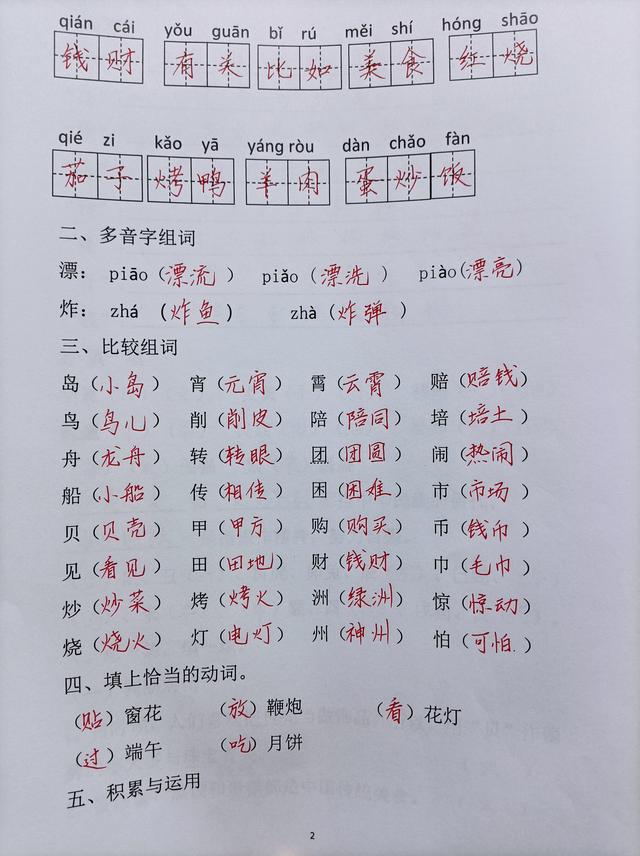 qián cái yǒu guān bǐ rú měi shí hóng shāo
钱财 有关 比如 美食 红烧
qié zi kǎo yā yáng ròu dàn chǎo fàn
茄子 烤鸭 羊肉 蛋炒饭
二、多音字组词
漂： piāo（漂流） piǎo（漂洗） piào(漂亮)
炸： zhá (炸鱼) zhà（炸弹）
三、比较组词
岛（小岛） 宵（元宵） 霄（云霄） 赔（赔钱）
鸟（鸟儿） 削（削皮） 陪（陪同） 培（培土）
舟（龙舟） 转（转眼） 团（团圆） 闹（热闹）
船（小船） 传（相传） 困（困难） 市（市场）
贝（贝壳） 甲（甲方） 购（购买） 币（钱币）
见（看见） 田（田地） 财（钱财） 巾（毛巾）
炒（炒菜） 烤（烤火） 洲（绿洲） 惊（惊动）
烧（烧火） 灯（电灯） 州（神州） 怕（可怕）
四、填上恰当的动词。
（贴）窗花 （放）鞭炮 （看）花灯
（过）端午 （吃）月饼
五、积累与运用
2